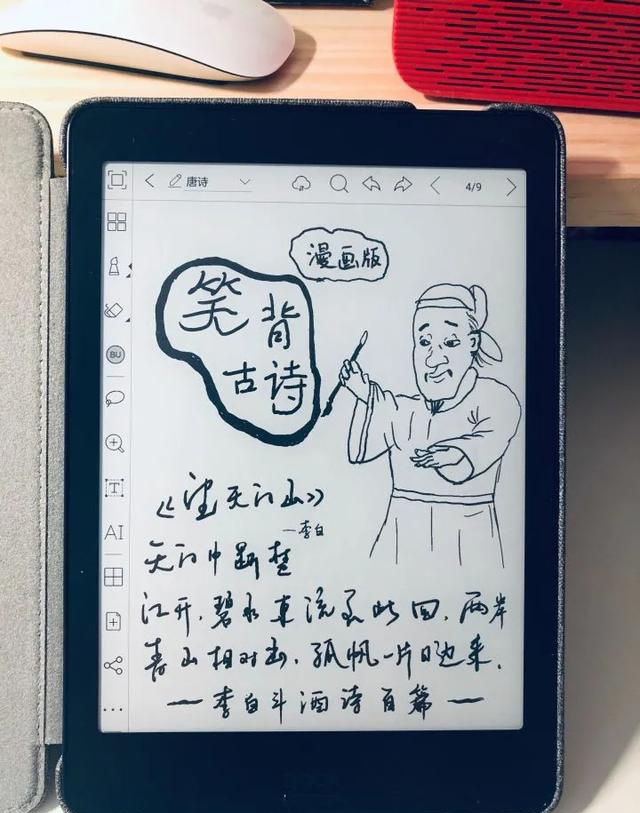 唐诗
4/9
漫画版
笑背
古诗
BU
AI
《望天门山》
—李白
天门中断楚
江开,碧水东流至此回,两岸
青山相对出,孤帆一片日边来.
—李白斗酒诗百篇—